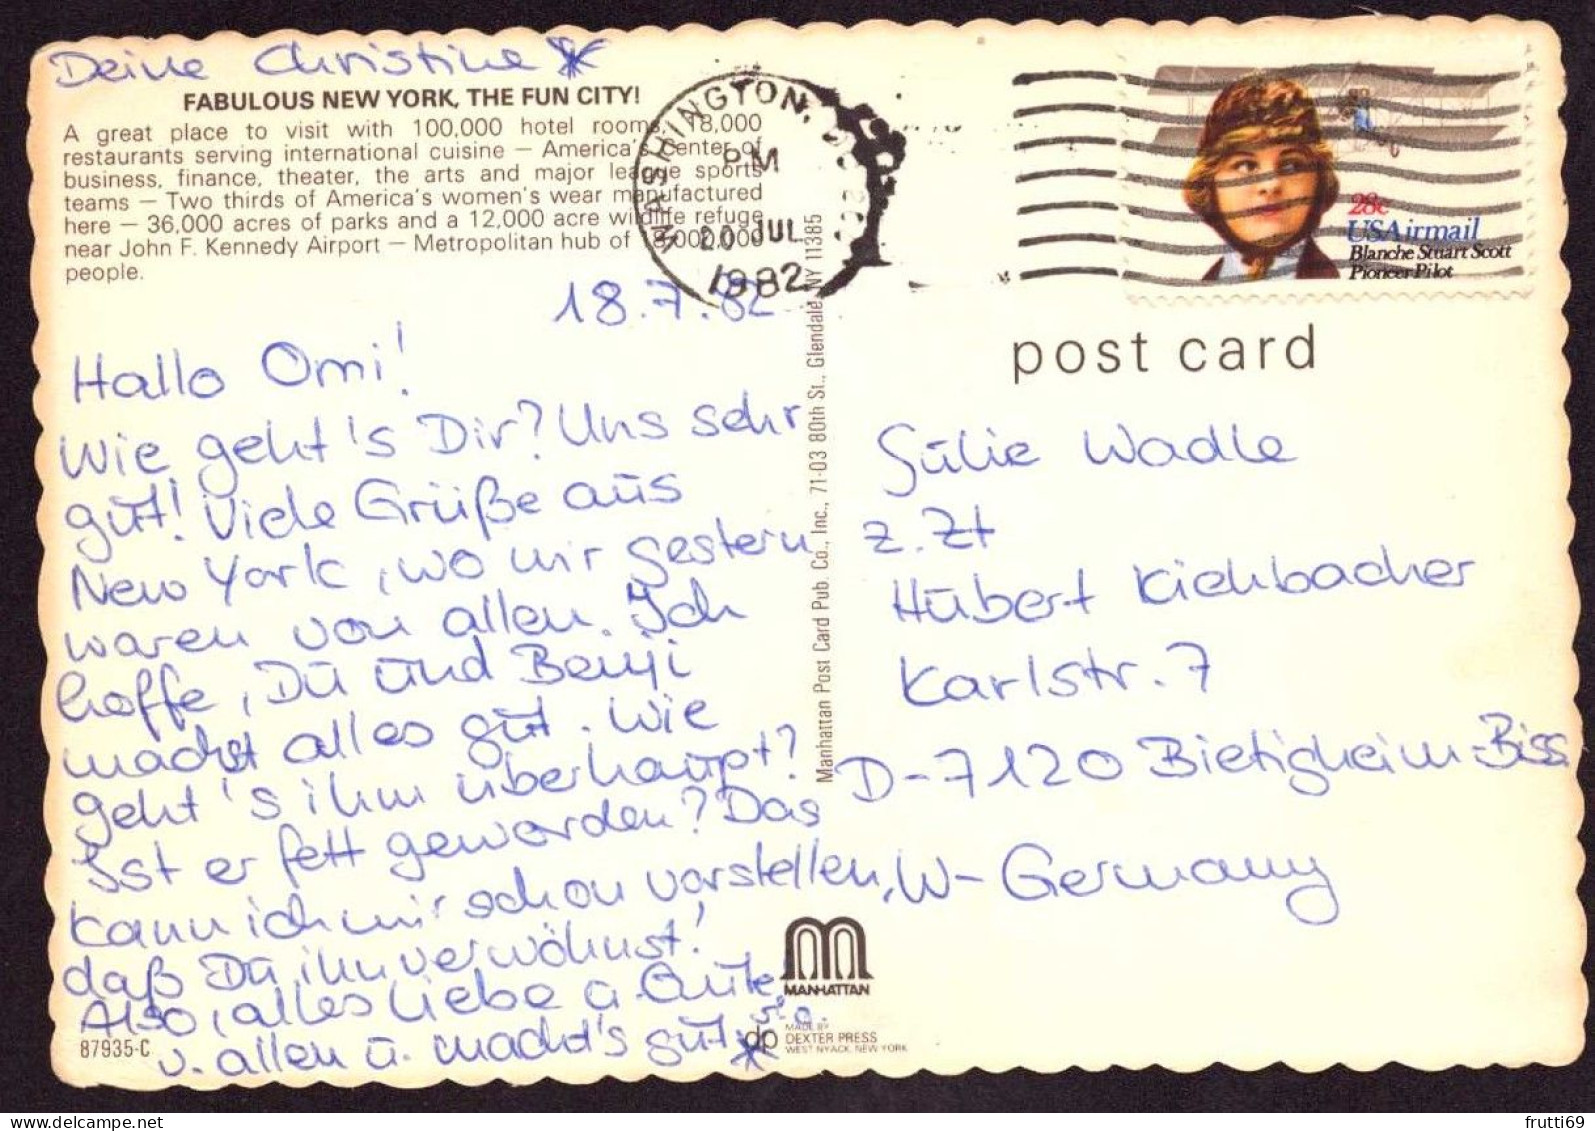 Deine Christine *
FABULOUS NEW YORK, THE FUN CITY!
A great place to visit with 100,000 hotel rooms, 18,000
restaurants serving international cuisine — America's Center of
business, finance, theater, the arts and major league sports
teams — Two thirds of America's women's wear manufactured
here — 36,000 acres of parks and a 12,000 acre wildlife refuge
near John F. Kennedy Airport — Metropolitan hub of 18,000,000
people.
WASHINGTON, DC
PM
20 JUL
1982
28c
USAirmail
Blanche Stuart Scott
Pioneer Pilot
post card
18.7.82
Hallo Omi!
Wie geht's Dir? Uns sehr
gut! Viele Grüße aus
New York, wo wir gestern
waren von allen. Ich
hoffe, Du und Benji
machst alles gut. Wie
geht's ihm überhaupt?
Ist er fett geworden? Das
kann ich mir schon vorstellen,
daß Du ihn verwöhnst!
Also, alles Liebe u. Gute,
v. allen u. macht's gut *
s.o.
Manhattan Post Card Pub. Co., Inc., 71-03 80th St., Glendale, NY 11385
Julie Wadle
z.Zt
Hubert Kiehbacher
Karlstr. 7
D-7120 Bietigheim-Biss.
W-Germany
MANHATTAN
87935-C
dp
MADE BY
DEXTER PRESS
WEST NYACK, NEW YORK
frutti69